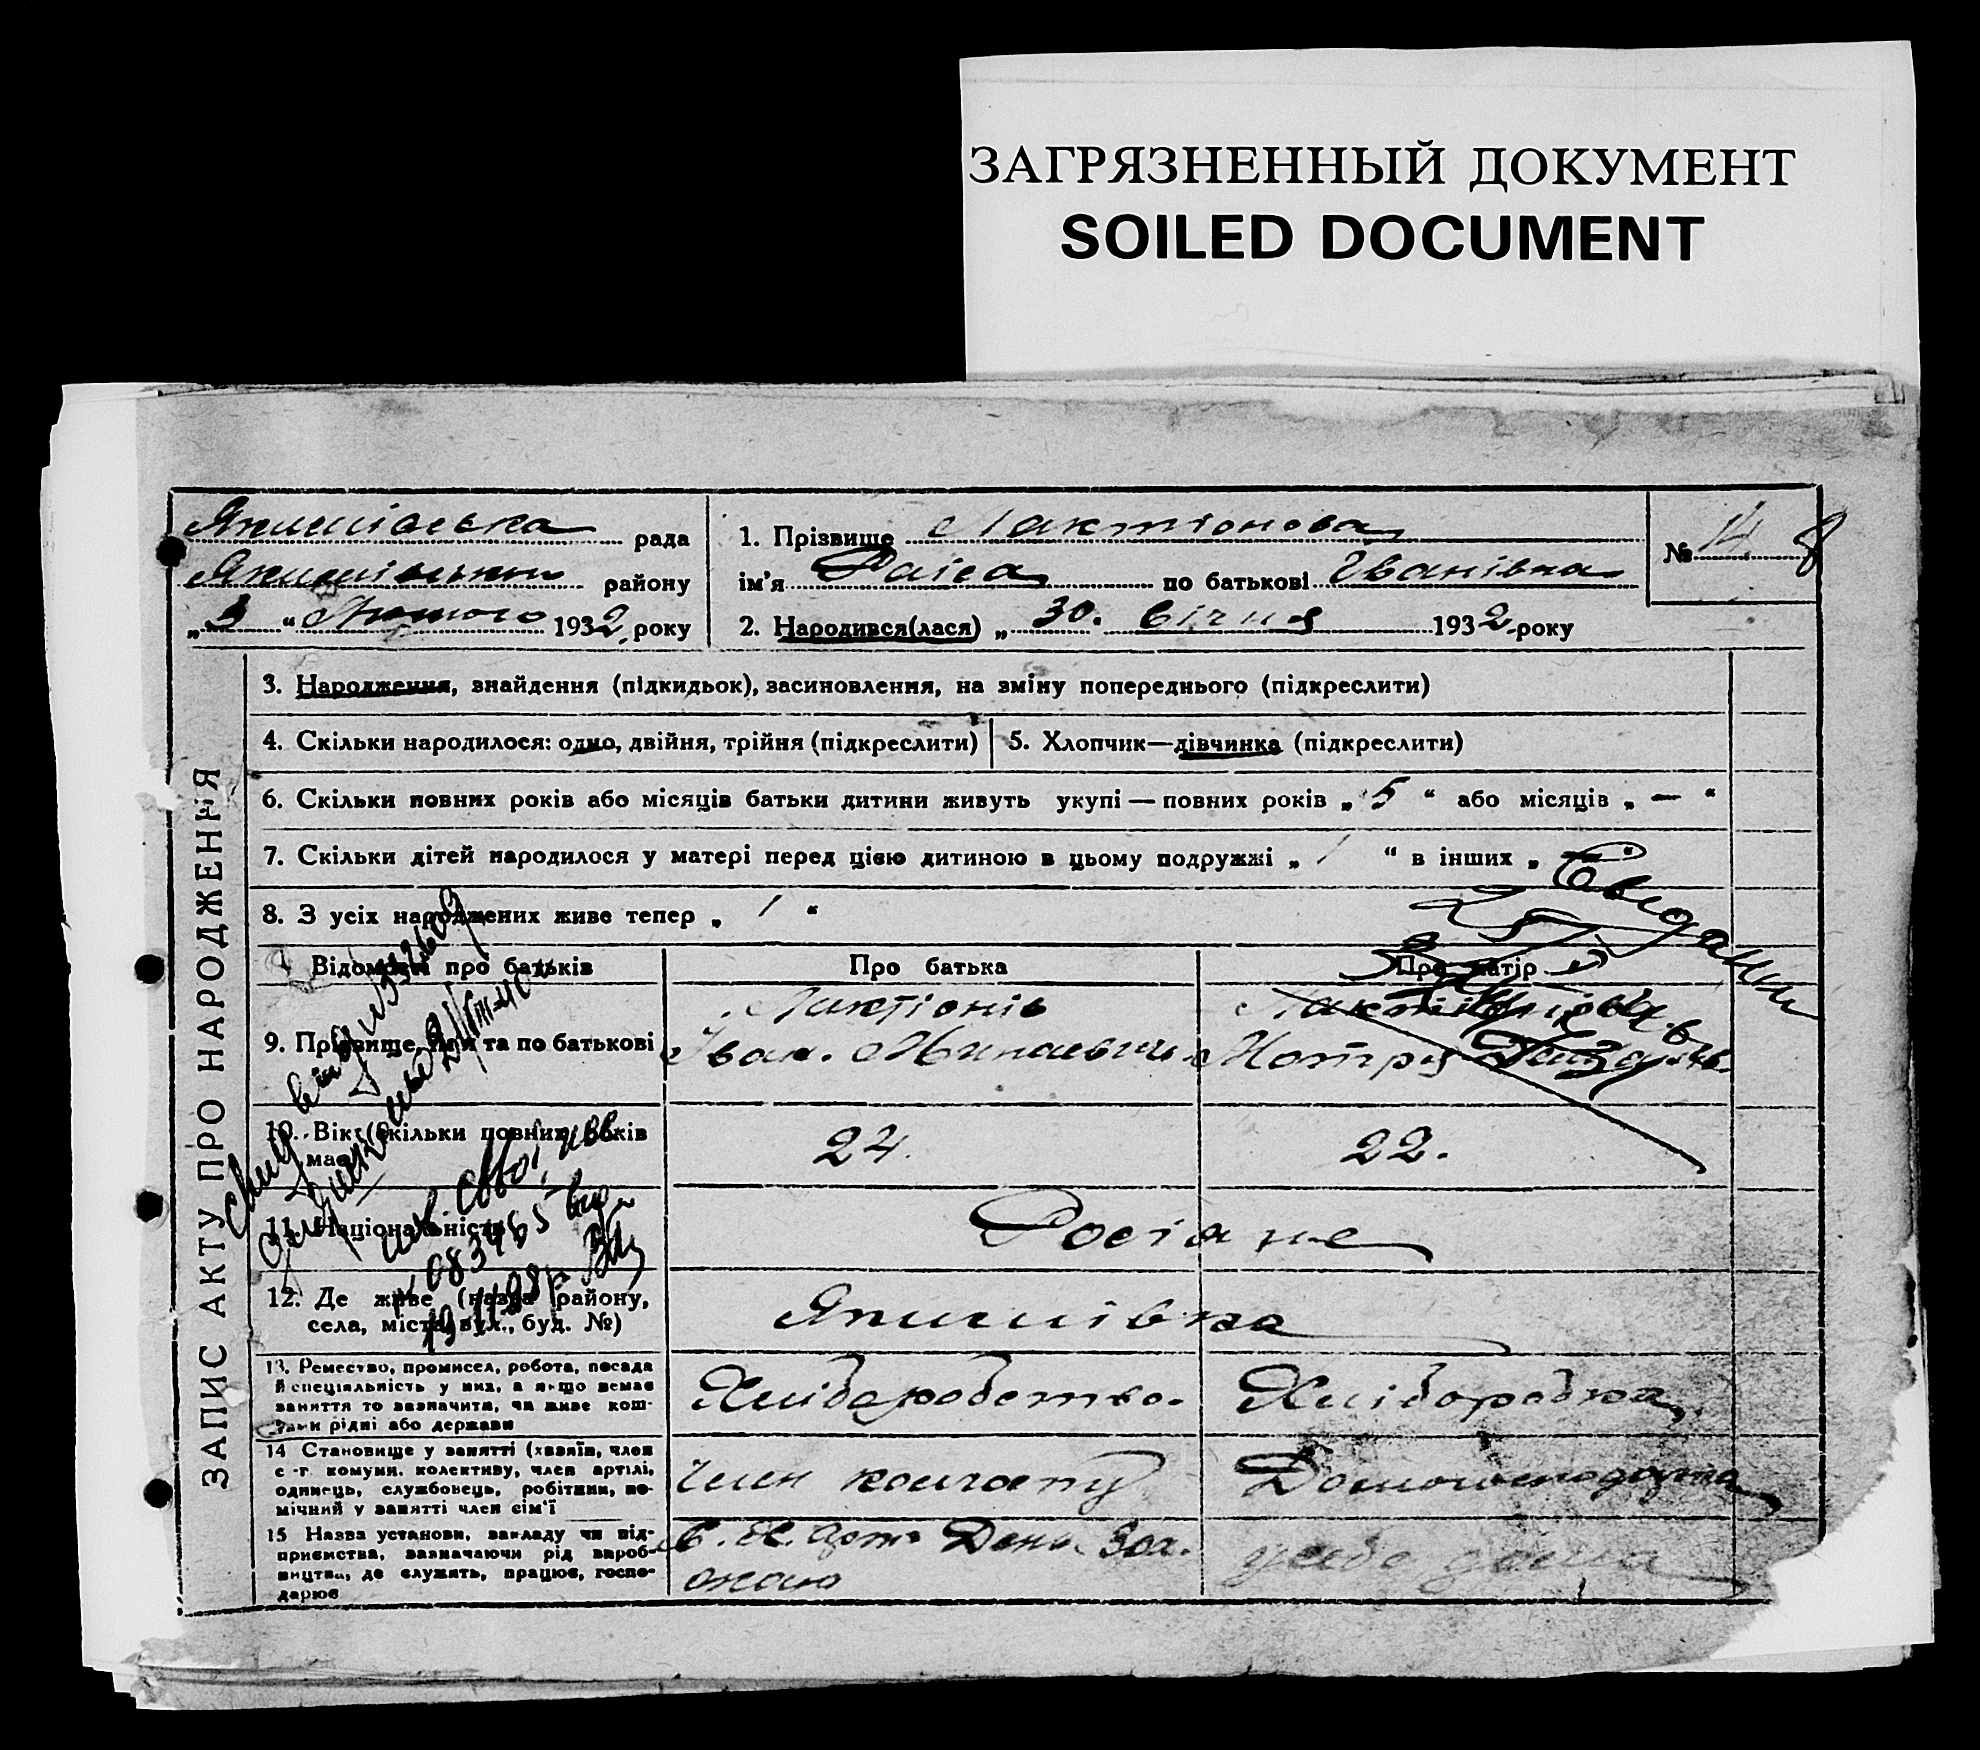 ЗАГРЯЗНЕННЫЙ ДОКУМЕНТ
SOILED DOCUMENT
Якимівська рада
Якимівського району
„ 3 “ Лютого 1932 року
1. Прізвище Лактіонова
ім'я Раіса по батькові Іванівна
2. Народився(лася) „ 30. Січня 1932 року
№ 14 8
ЗАПИС АКТУ ПРО НАРОДЖЕННЯ
3. Народження, знайдення (підкидьок), засиновлення, на зміну попереднього (підкреслити)
4. Скільки народилося: одно, двійня, трійня (підкреслити)
5. Хлопчик—дівчинка (підкреслити)
6. Скільки повних років або місяців батьки дитини живуть укупі — повних років „ 5 “ або місяців „ — “
7. Скільки дітей народилося у матері перед цією дитиною в цьому подружжі „ 1 “ в інших „ — “
8. З усіх народжених живе тепер „ 1 “
Відомості про батьків
Про батька
Про матір
9. Прізвище, ім'я та по батькові
Лактіонів
Іван
Мотря
10. Вік (скільки повних років
має)
24.
22.
11. Національність
Росіяне
12. Де живе (назва району,
села, міста, вул., буд. №)
Якимівка
13. Ремество, промисел, робота, посада
й спеціяльність у них, а якщо немає
заняття то зазначити, чи живе кош-
тами рідні або держави
Хліборобство.
Хліборобка
14 Становище у занятті (хазяїн, член
с-г комуни, колективу, член артілі,
одинець, службовець, робітник, по-
мічний у занятті член сім'ї
Член колгопу
Домогосподарка
15 Назва установи, закладу чи під-
приємства, зазначаючи рід вироб-
ництва, де служить, працює, госпо-
дарює
С. Г. Арт. День